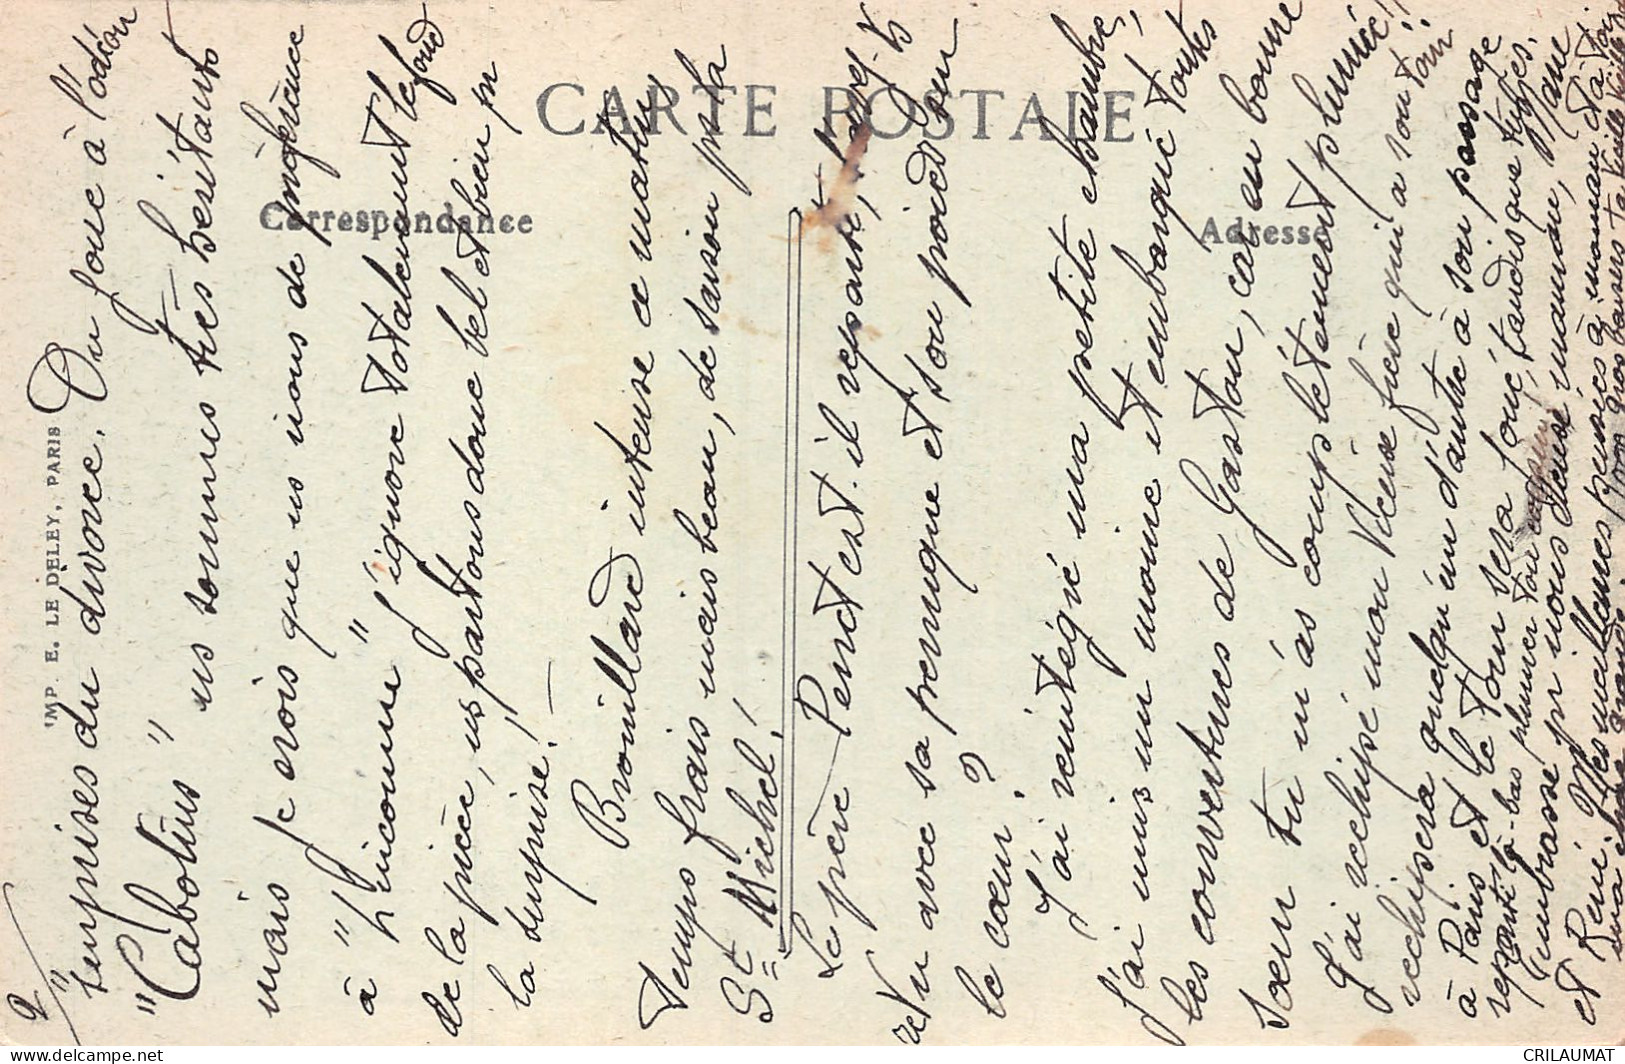 CARTE POSTALE
Correspondance
Adresse
IMP. E. LE DELEY, PARIS
2/
"surprises du divorce. On joue à l'odéon
"Cabotins" ns sommes très hésitants
mais je crois que ns irons de préférence
à "L'inconnu" j'ignore totalement le fond
de la pièce, ns partons donc bel et bien pr
la surprise!
Brouillard intense ce matin
temps frais mais beau, de saison pr la
St Michel!
Le père Pend est-il reparti,
avec sa perruque et son poids sur
le cœur?
J'ai réintégré ma petite chambre,
j'ai mis un moine et embarqué toutes
les couvertures de Gaston, car en bonne
sœur tu m'as complètement plumée!
J'ai rechipé mon Vicuse frère qui à son tour
rechipera quelqu'un d'autre à son passage
à Paris et le tour sera joué, tandis que
là-bas plumer ton
t'embrasse pr nous deux, maman, Mme
et René. Mes meilleures pensées à maman et à toi
gros baisers ta Vieille
CRILAUMAT